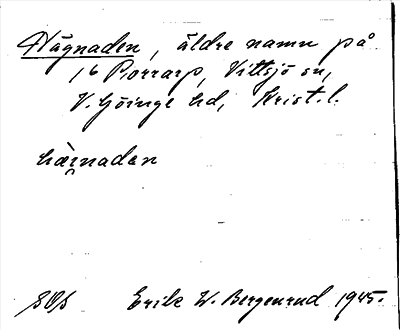 Hägnaden, äldre namn på
16 Porrarp, Vittsjö sn,
V. Göinge hd, Krist. l.
hæ̀i̯naden
SOS Erik W. Bergenrud 1945.